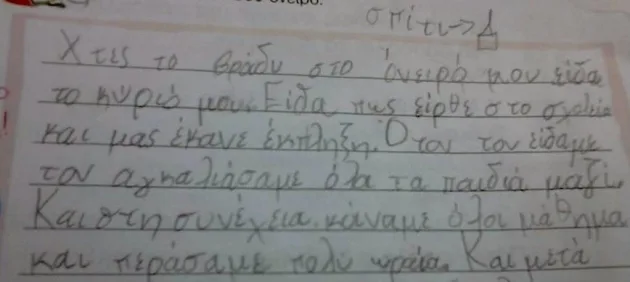 όνειρο.
σπίτι→Δ
Χτες το βράδυ στο όνειρό μου είδα
το κυριό μου. Είδα πως είρθε στο σχολείο
και μας έκανε έκπληξη. Όταν τον είδαμε
τον αγκαλιάσαμε όλα τα παιδιά μαζί.
Και στη συνέχεια κάναμε όλοι μάθημα
και περάσαμε πολυ ωραία. Και μετά